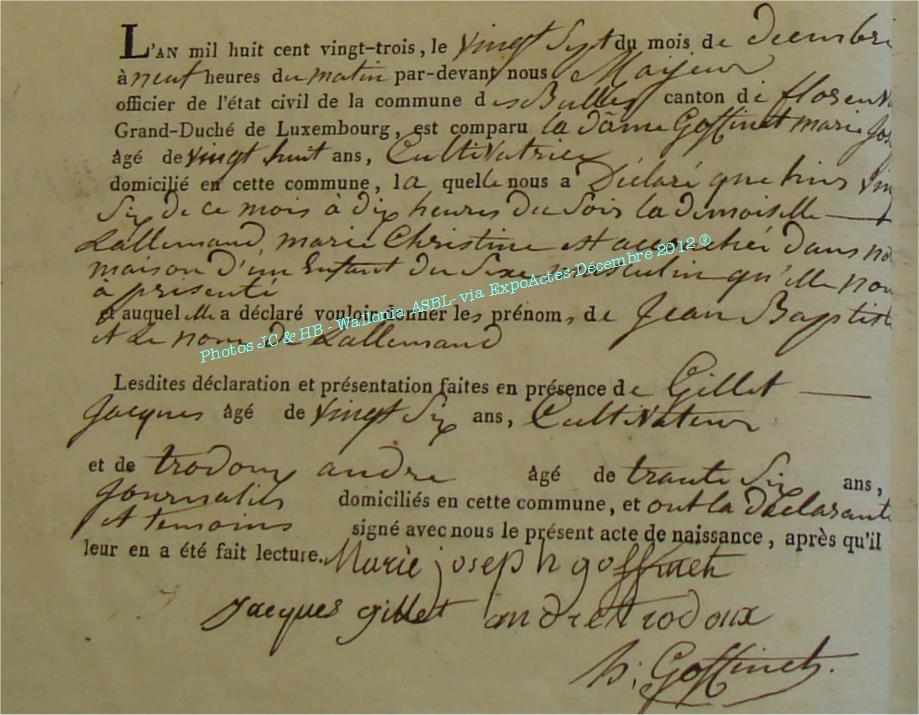 L'AN mil huit cent vingt-trois, le vingt Sept du mois de decembre
à neuf heures du matin par-devant nous Mayeur
officier de l'état civil de la commune des Bulles canton de florenv
Grand-Duché de Luxembourg, est comparu la dâme Goffinet marie Jos
âgé de vingt huit ans, Cultivatrice
domicilié en cette commune, la quelle nous a Déclaré que hier vin
Six de ce mois à dix heures du Soir la demoiselle
Lallemand, marie Christine est accouchée dans no
maison d'un Enfant du Sexe masculin qu'elle nou
à présenté
et auquel elle a déclaré vouloir donner les prénoms de Jean Baptist
et le nom de Lallemand
Photos JC & HB - Wallonia ASBL- via ExpoActes-Décembre 2012 ®
Lesdites déclaration et présentation faites en présence de Gillet
Jacques âgé de vingt Six ans, Cultivateur
et de trodoux andre âgé de trante Six ans,
Journalié domiciliés en cette commune, et ont la déclarante
et temoins signé avec nous le présent acte de naissance, après qu'il
leur en a été fait lecture. Marie joseph goffinet
Jacques gillet andre trodoux
h: Goffinet.